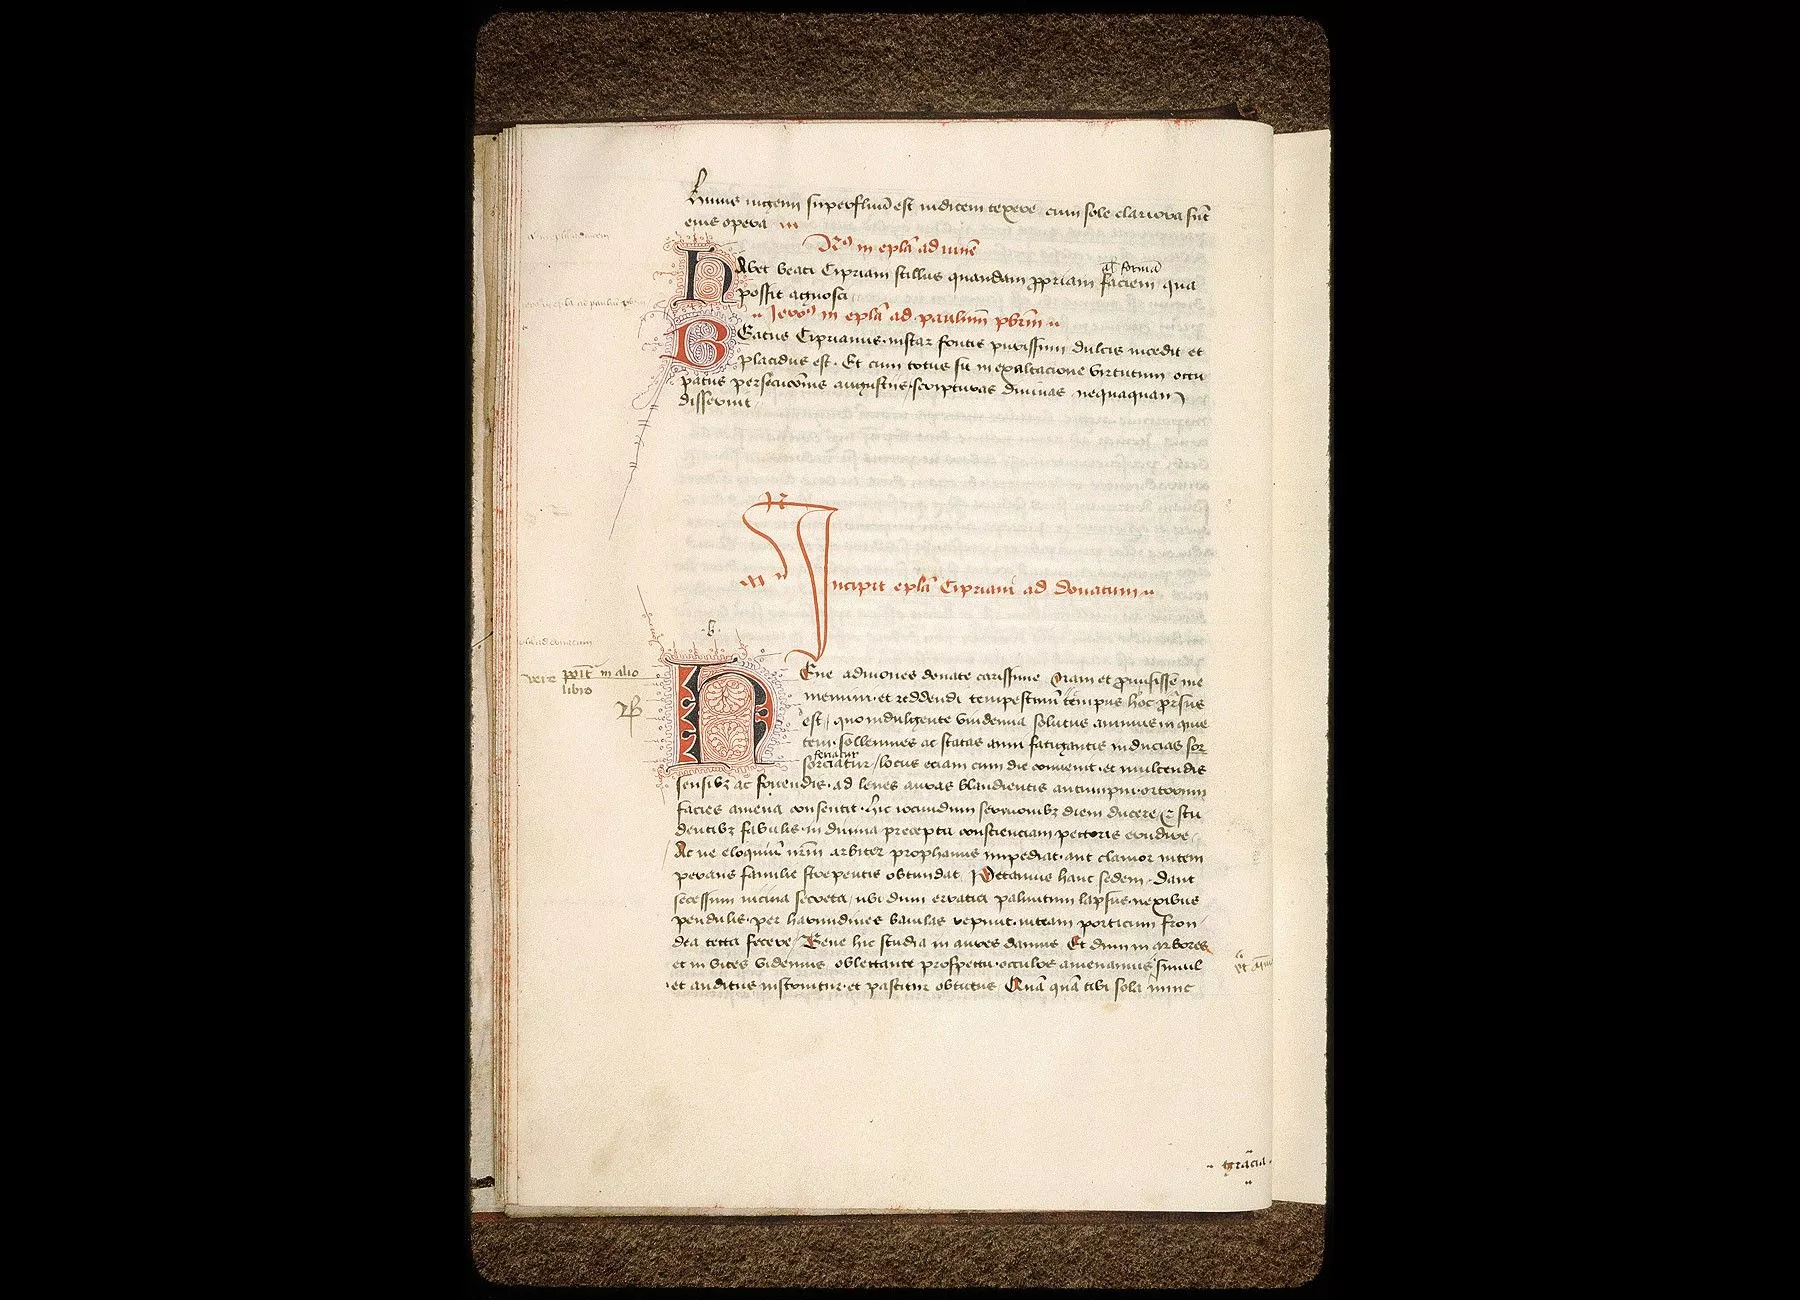 Huius ingenii superfluū est indicem texere cum sole clariora sūt
eius opera
in eplā ad
Abet beati Cipriani stillas quandam ppriam faciem qua
al' formā
possit agnosci
Jero⁹ in eplā ad paulinū pbrm̄
B Eatus Ciprianus instar fontis purissimi dulcis incedit et
placidus est. Et cum totus sit in exaltacione virtutum occu
patus persecucōnis angustiis scripturas divinas nequaquam
disseruit
Incipit eplā Cipriani ad donatum
·b·
B Ene admones donate carissime Nam et promisisse me
memini et reddendi tempestiuū tempus hoc pn̄s
est, quo indulgente vindemia solutus animus in quie
tem sollennes ac statas anni fatigantis inducias sor
feriatur
sorciatur, locus eciam cum die conuenit et mulcendis
sensibꝫ ac fouendis ad lenes auras blandientis autumpni ortorum
facies amena consentit. Hic iocundum sermonibꝫ diem ducere & stu
dentibꝫ fabulis in diuina precepta conscienciam pectoris erudire
Ac ne eloquiū nr̄m arbiter prophanus impediat aut clamor intem
perans familie strepentis obtundat, Petamus hanc sedem. Dant
secessum uicina secreta, ubi dum erratici palmitum lapsus nexibus
pendulis per harundines baiulas repunt uiteam porticum fron
dea tecta fecere, Bene hic studia in aures damus Et dum in arbores
et in vites videmus oblectante prospectu occulos amenamus simul
et auditus instruitur et pascitur obtutus, Quā quā tibi sola nunc
in alio
libro
gracia